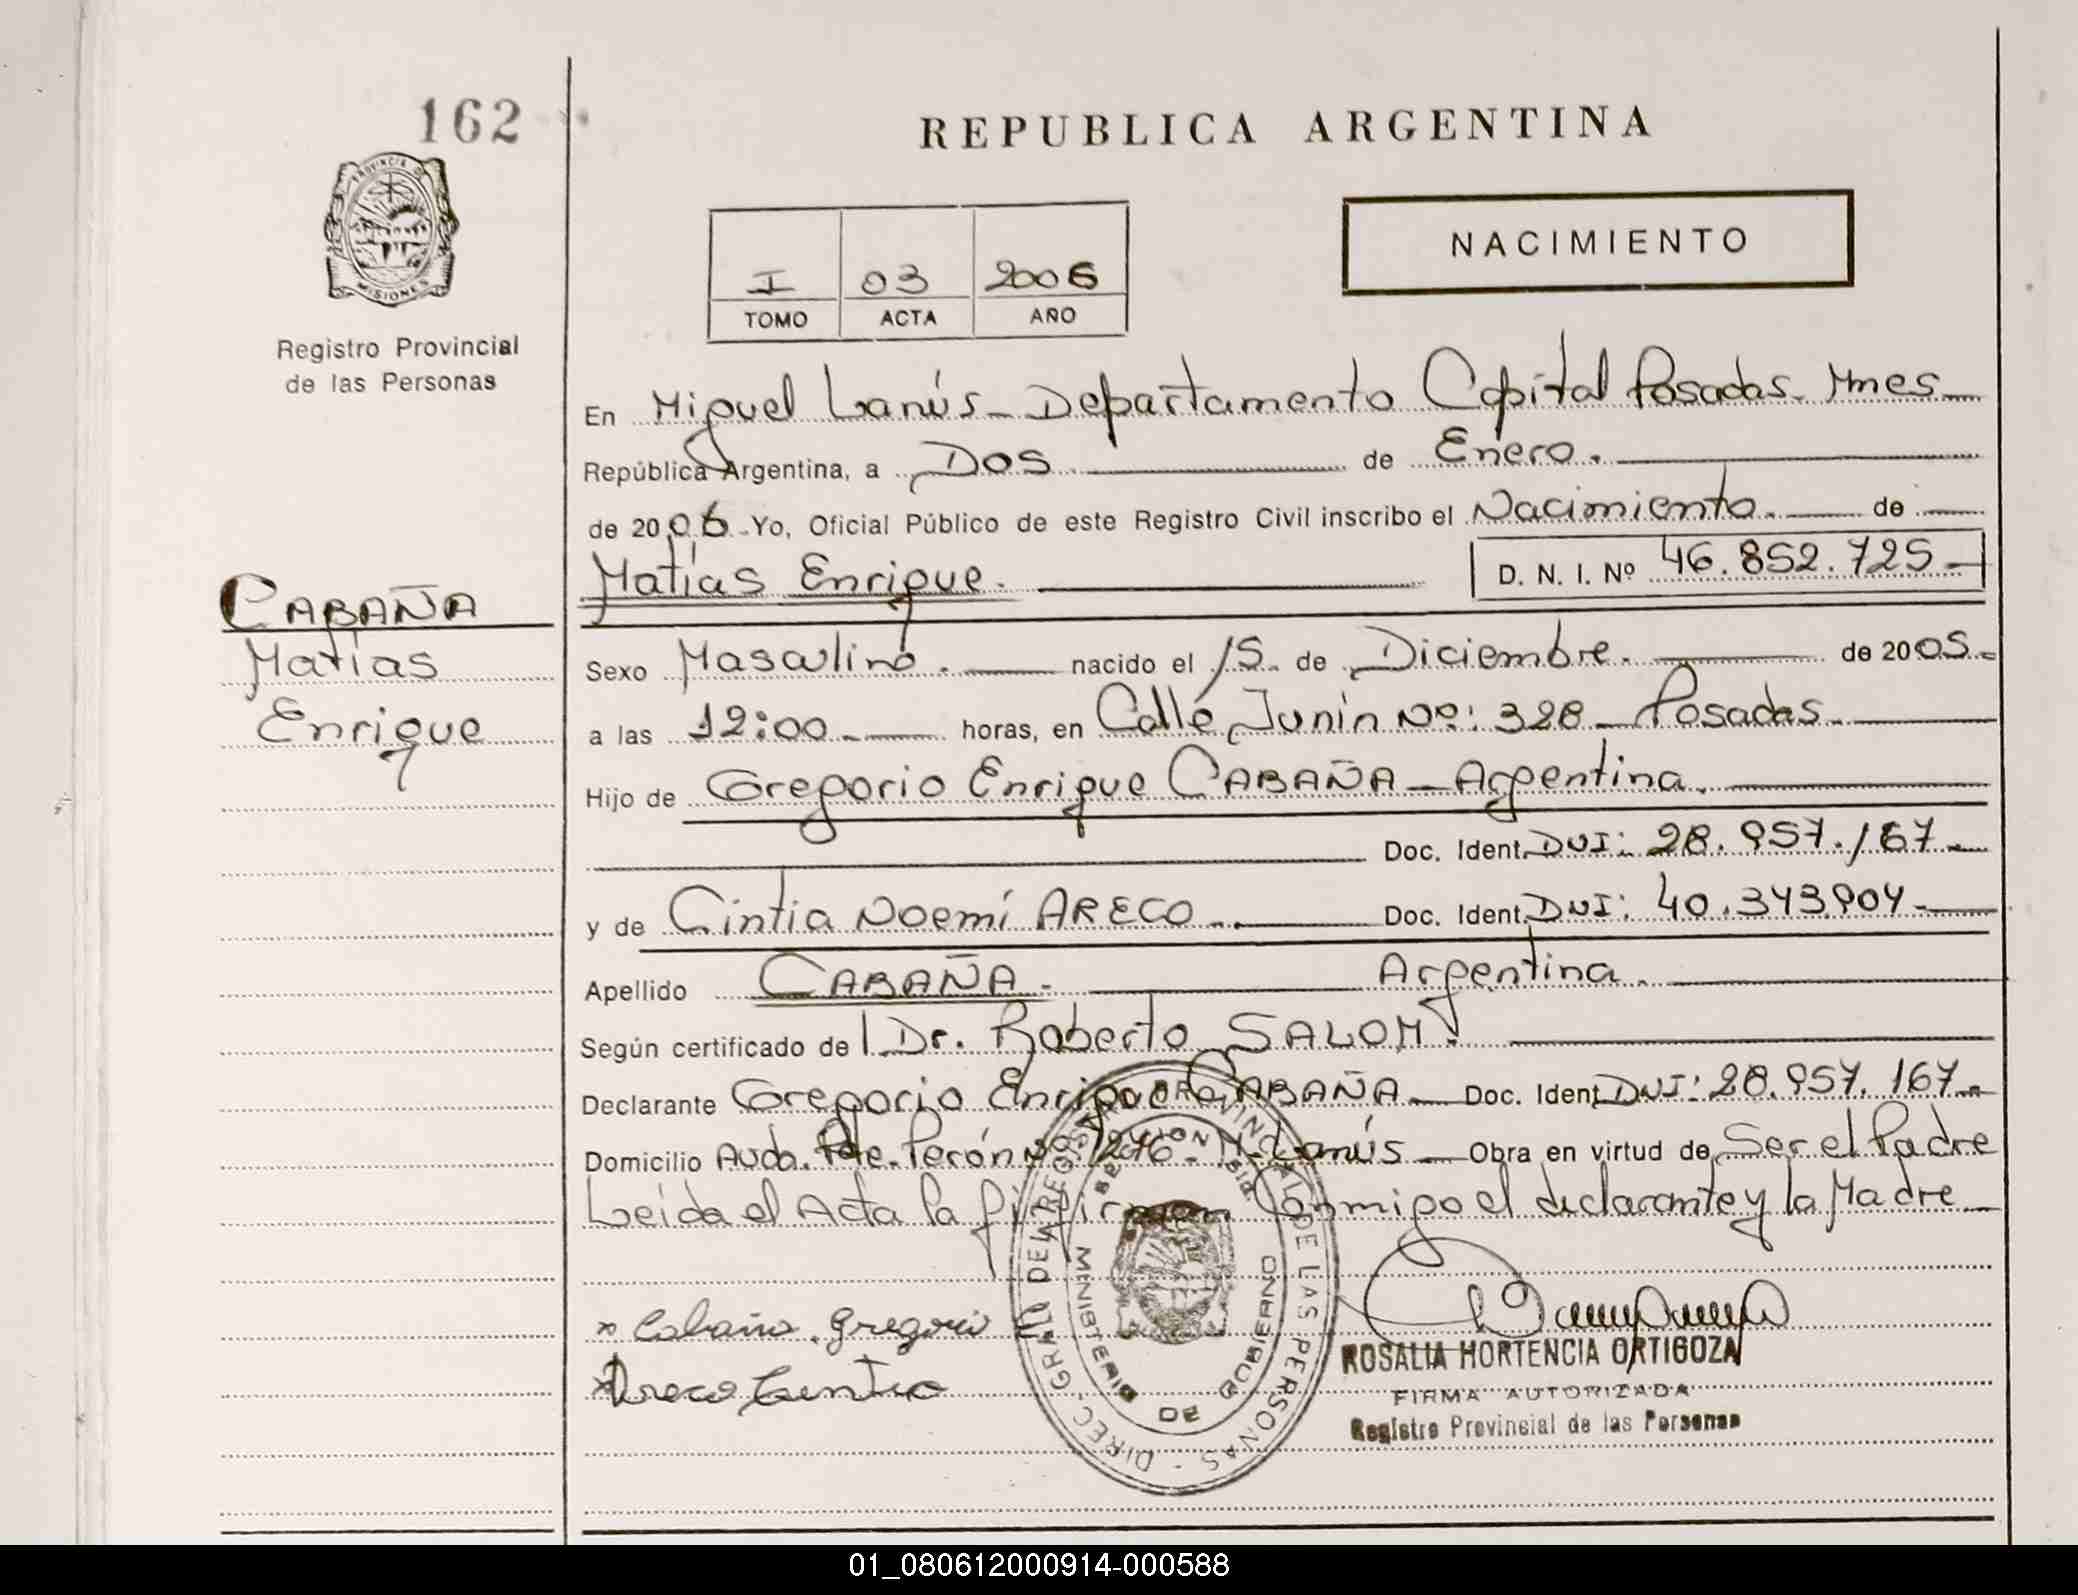 162
REPUBLICA ARGENTINA
PROVINCIA DE
MISIONES
NACIMIENTO
I 03 2006
TOMO ACTA AÑO
Registro Provincial
de las Personas
En Miguel Lanús - Departamento Capital Posadas - Mnes
República Argentina, a Dos de Enero.
de 2006 - Yo, Oficial Público de este Registro Civil inscribo el Nacimiento. de
Matías Enrique. D. N. I. Nº 46.852.725
CABAÑA
Matías
Enrique
Sexo Masculino. nacido el 15 de Diciembre. de 2005
a las 12:00 horas, en Calle Junín Nº: 328 - Posadas
Hijo de Gregorio Enrique CABAÑA - Argentina.
Doc. Ident. DNI: 28.957.167
y de Cintia Noemí ARECO Doc. Ident. DNI: 40.343.904
Apellido CABAÑA - Argentina.
Según certificado de Dr. Roberto SALOM.
Declarante Gregorio Enrique CABAÑA Doc. Ident. DNI: 28.957.167
Domicilio Avda. Pte. Perón Nº 1276 - M. Lanús Obra en virtud de Ser el Padre
Leída el Acta la firman Conmigo el declarante y la Madre
x Cabaña, Gregorio
x Areco Cintia
DIREC. GRAL DEL REGISTRO PROVINCIAL DE LAS PERSONAS
MINISTERIO DE GOBIERNO
ROSALIA HORTENCIA ORTIGOZA
FIRMA AUTORIZADA
Registro Provincial de las Personas
01_080612000914-000588